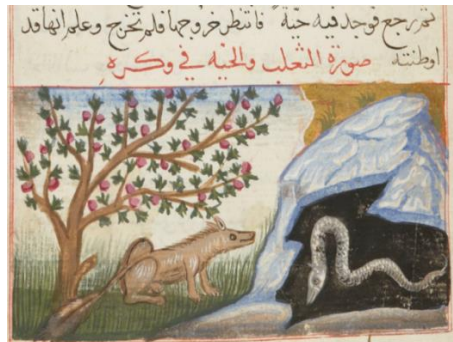 ثم رجع فوجد فيه حية فانتظر خروجها فلم تخرج وعلم انها قد
اوطنته صورة الثعلب والحية في وكره